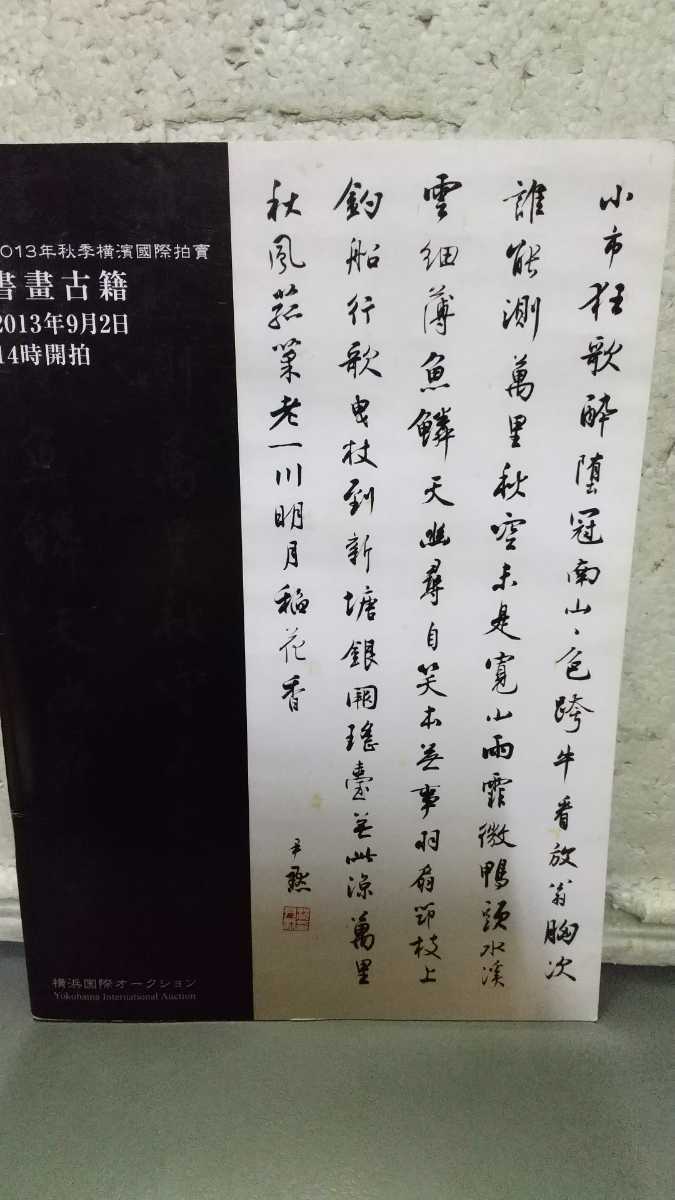 013年秋季横濱國際拍賣
書畫古籍
2013年9月2日
14時開拍
小市狂歌醉墮冠南山、色跨牛看放翁胸次
誰能測萬里秋空未是寬小雨霏微鴨頭水溪
雲細薄魚鱗天幽尋自笑本無事羽扇筇枝上
釣船行歌曳杖到新塘銀闕瑤臺無此涼萬里
秋風菰葉老一川明月稻花香
尹默
横浜国際オークション
Yokohama International Auction